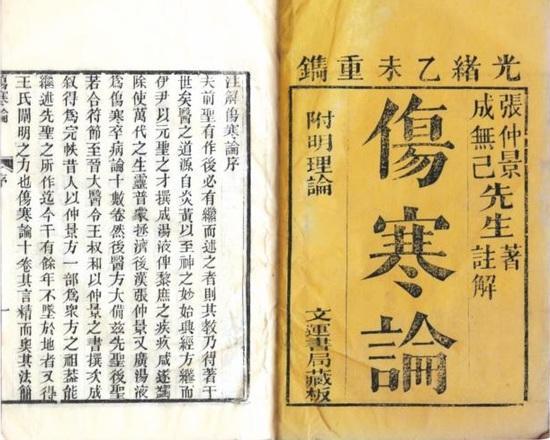 光緒乙未重鐫
張仲景
成無己
先生
著
註解
傷寒論
附明理論
文運書局藏板
注解傷寒論序
夫前聖有作後必有繼而述之者則其教乃得著于
世矣醫之道源自炎黃以至神之妙始典經方繼而
伊尹以元聖之才撰成湯液俾黎庶之疾疚咸遂蠲
除使萬代之生靈普蒙拯濟後漢張仲景又廣湯液
爲傷寒卒病論十數卷然後醫方大備茲先聖後聖
若合符節至晉大醫令王叔和以仲景之書撰次成
敘得爲完帙昔人以仲景方一部爲衆方之祖蓋能
繼述先聖之所作迄今千有餘年不墜於地者又得
王氏闡明之力也傷寒論十卷其言精而奧其法簡
傷寒論 序 一